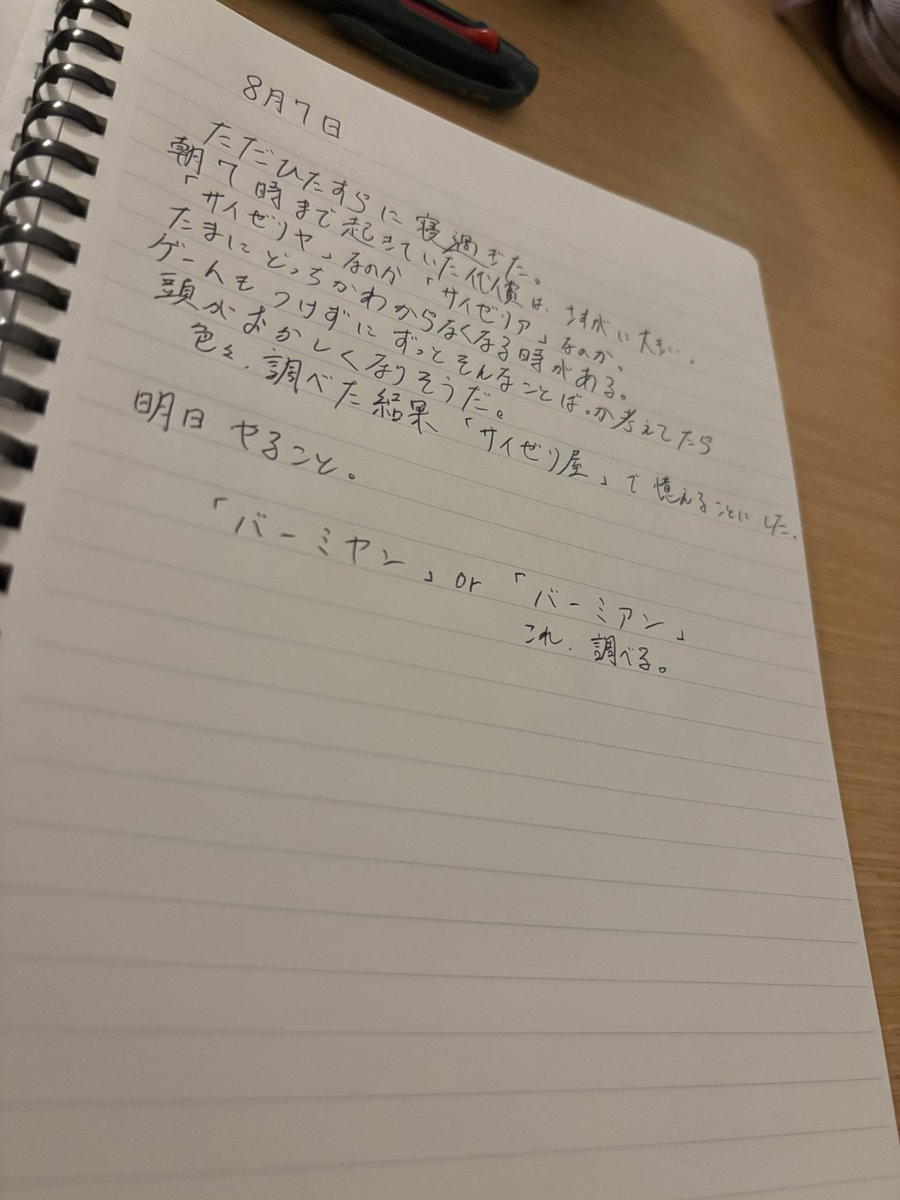 8月7日
ただひたすらに寝過ぎた。
朝7時まで起きていた代償は、さすがに大きい。
「サイゼリヤ」なのか「サイゼリア」なのか。
たまにどっちかわからなくなる時がある。
ゲームもつけずにずっとそんなことばっか考えてたら
頭がおかしくなりそうだ。
色々、調べた結果、「サイゼリ屋」で憶えることにした。
明日やること。
「バーミヤン」or「バーミアン」
これ、調べる。